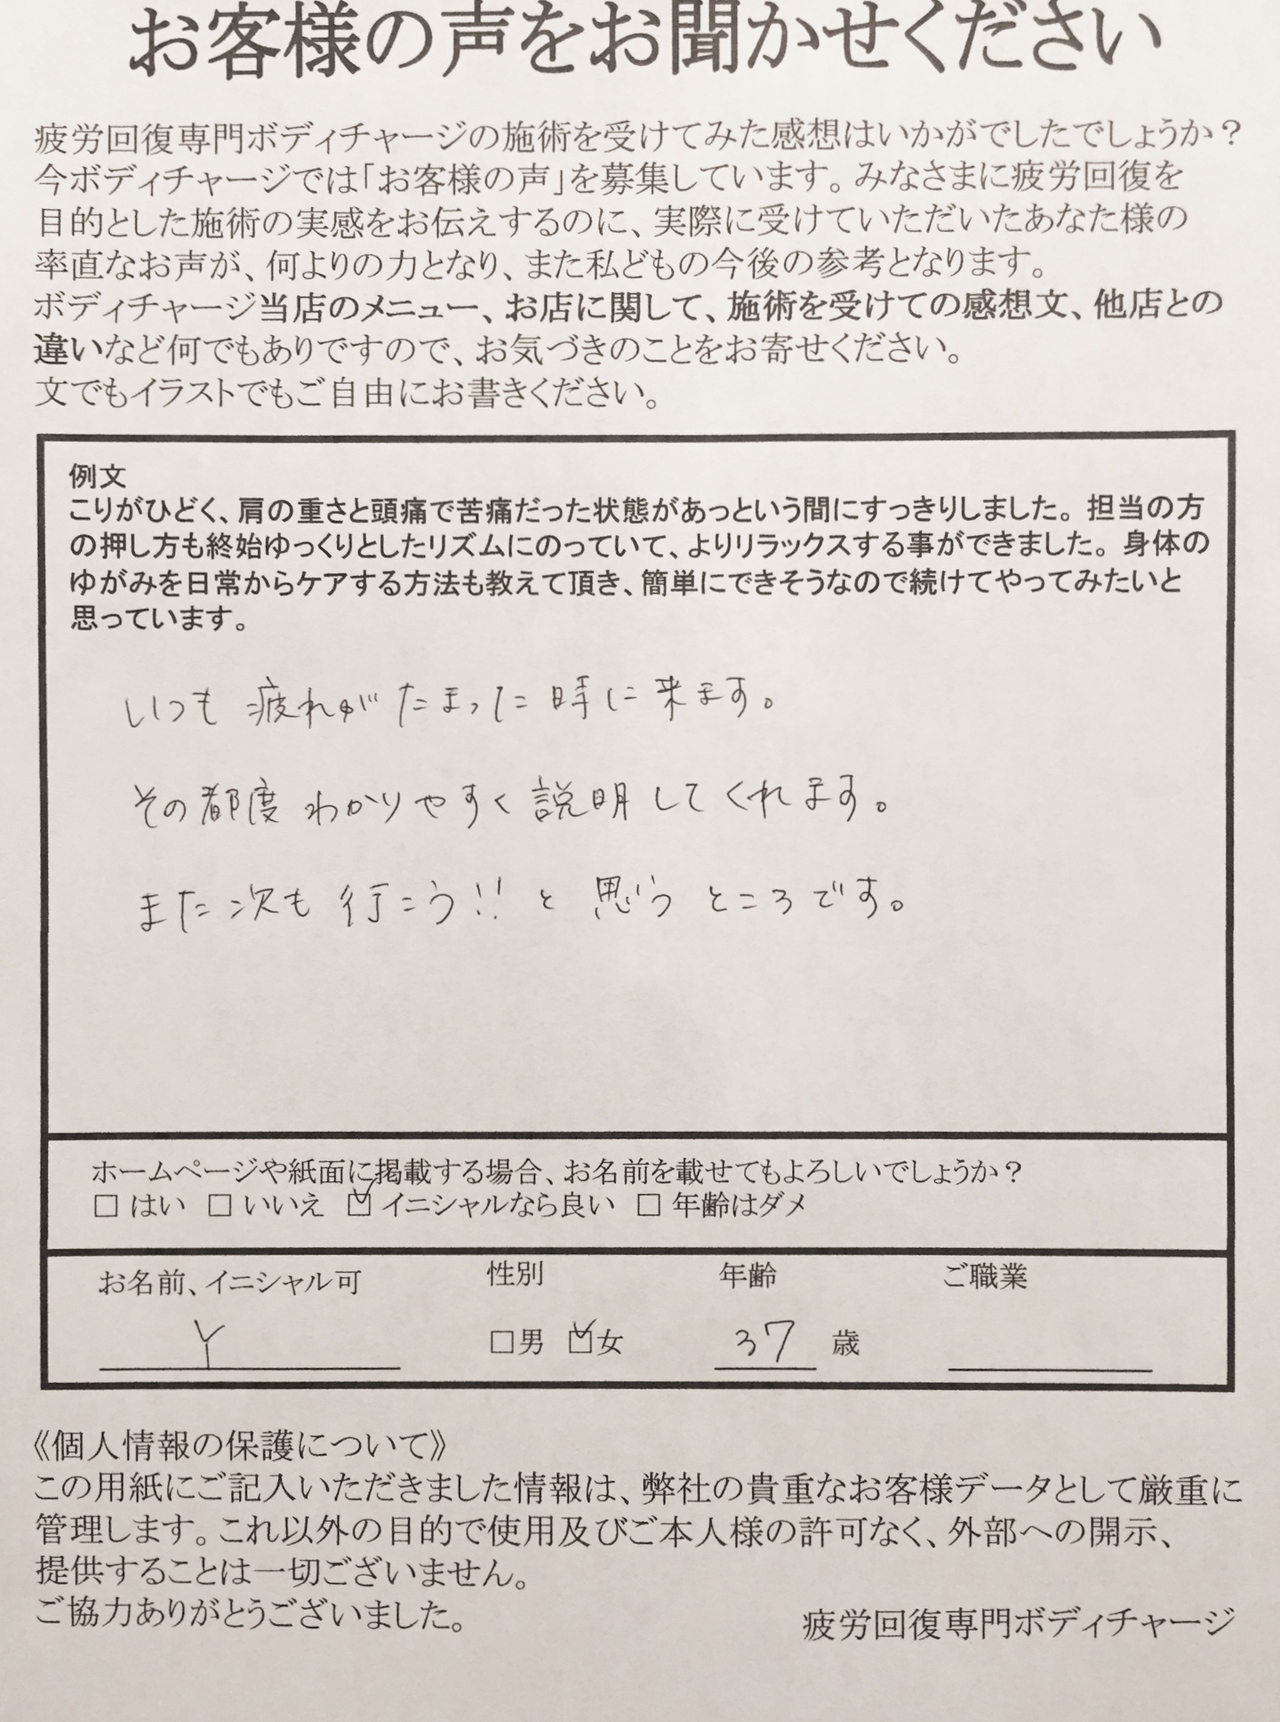 お客様の声をお聞かせください
疲労回復専門ボディチャージの施術を受けてみた感想はいかがでしたでしょうか？
今ボディチャージでは「お客様の声」を募集しています。みなさまに疲労回復を
目的とした施術の実感をお伝えするのに、実際に受けていただいたあなた様の
率直なお声が、何よりの力となり、また私どもの今後の参考となります。
ボディチャージ当店のメニュー、お店に関して、施術を受けての感想文、他店との
違いなど何でもありですので、お気づきのことをお寄せください。
文でもイラストでもご自由にお書きください。
例文
こりがひどく、肩の重さと頭痛で苦痛だった状態があっという間にすっきりしました。担当の方
の押し方も終始ゆっくりとしたリズムにのっていて、よりリラックスする事ができました。身体の
ゆがみを日常からケアする方法も教えて頂き、簡単にできそうなので続けてやってみたいと
思っています。
いつも疲れがたまった時に来ます。
その都度わかりやすく説明してくれます。
また次も行こう!!と思うところです。
ホームページや紙面に掲載する場合、お名前を載せてもよろしいでしょうか？
□ はい □ いいえ ☑ イニシャルなら良い □ 年齢はダメ
お名前、イニシャル可 性別 年齢 ご職業
Y □男 ☑女 37 歳
《個人情報の保護について》
この用紙にご記入いただきました情報は、弊社の貴重なお客様データとして厳重に
管理します。これ以外の目的で使用及びご本人様の許可なく、外部への開示、
提供することは一切ございません。
ご協力ありがとうございました。
疲労回復専門ボディチャージ